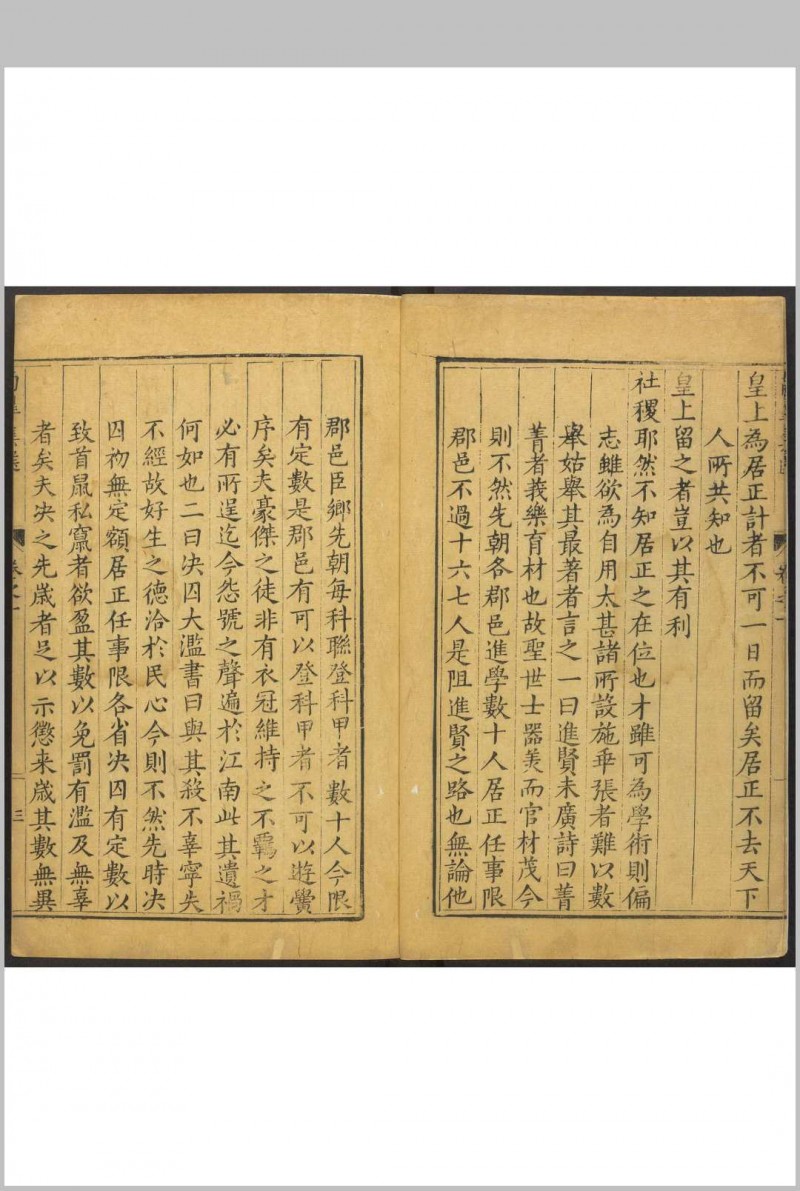 皇上為居正計者不可一日而留矣居正不去天下
人所共知也
皇上留之者豈以其有利
社稷耶然不知居正之在位也才雖可為學術則偏
志雖欲為自用太甚諸所設施乖張者難以數
舉姑舉其最著者言之一曰進賢未廣詩曰菁
菁者莪樂育材也故聖世士器羙而官材茂今
則不然先朝各郡邑進學數十人居正任事限
郡邑不過十六七人是阻進賢之路也無論他
郡邑臣鄉先朝每科聯登科甲者數十人今限
有定數是郡邑有可以登科甲者不可以遊黌
序矣夫豪傑之徒非有衣冠維持之不羈之才
必有所逞迄今怨號之聲遍於江南此其遺禍
何如也二曰决囚大濫書曰與其殺不辜寧失
不經故好生之德洽於民心今則不然先時决
囚初無定額居正任事限各省决囚有定數以
致首鼠私竄者欲盈其數以免罰有濫及無辜
者矣夫决之先歲者足以示懲来歲其數無異
卷之一
三